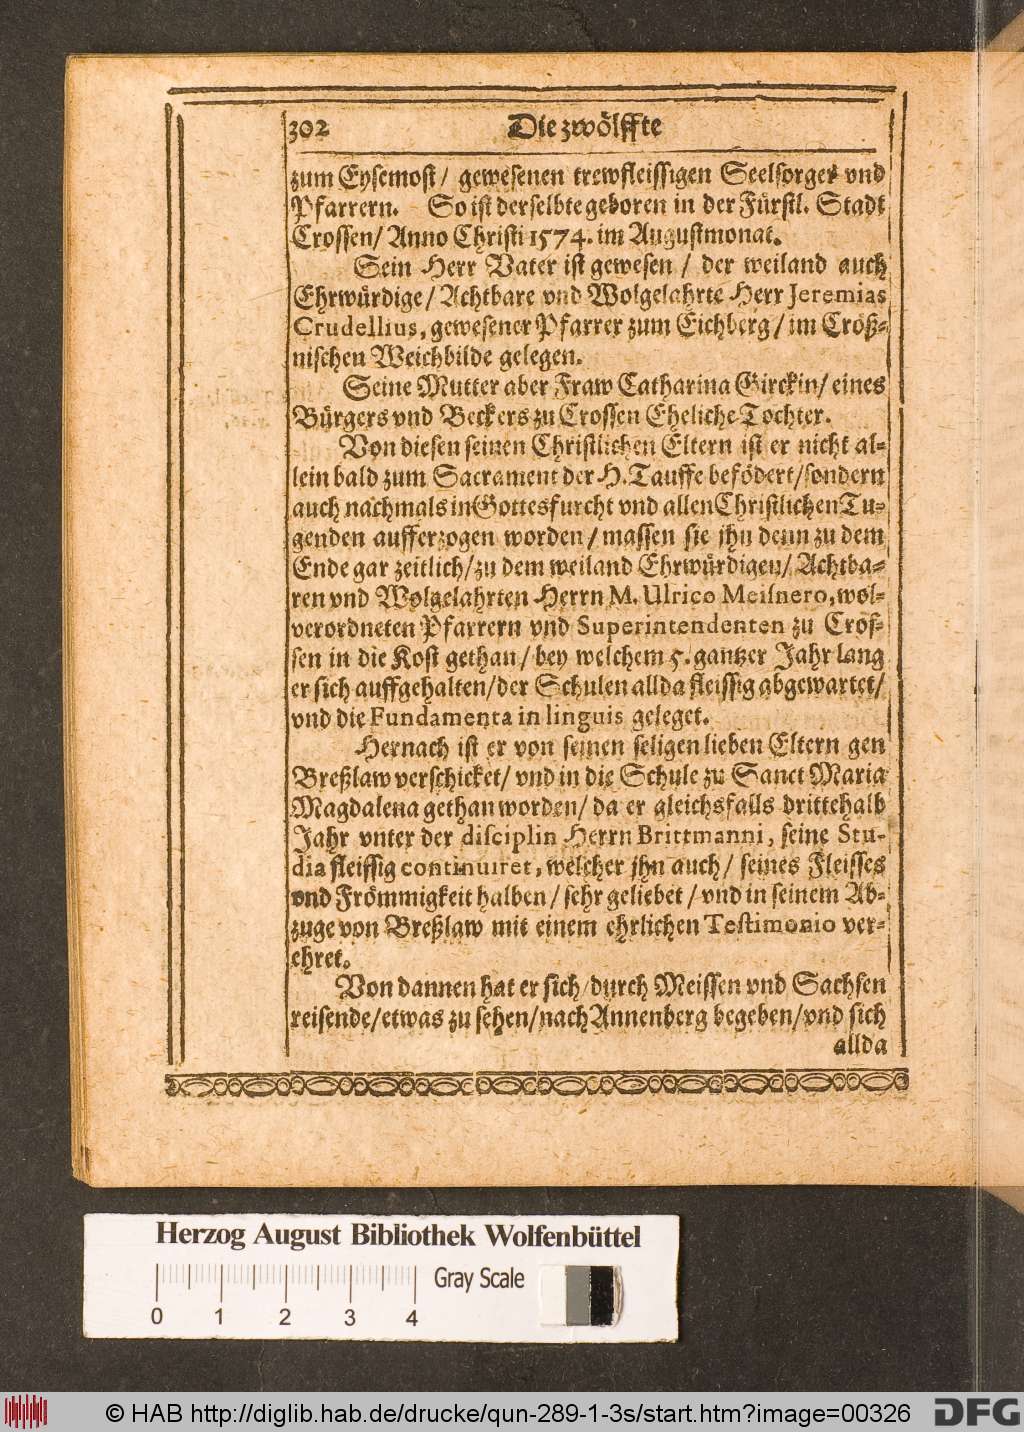 302 Die zwölffte
zum Eysemost/ gewesenen trewfleissigen Seelsorger vnd
Pfarrern. So ist derselbte geboren in der Fürstl. Stadt
Crossen/ Anno Christi 1574. im Augustmonat.
Sein Herr Vater ist gewesen / der weiland auch
Ehrwürdige/ Achtbare vnd Wolgelahrte Herr Jeremias
Crudellius, gewesener Pfarrer zum Eichberg/ im Croß-
nischen Weichbilde gelegen.
Seine Mutter aber Fraw Catharina Girckin/ eines
Bürgers vnd Beckers zu Crossen Eheliche Tochter.
Von diesen seinen Christlichen Eltern ist er nicht al-
lein bald zum Sacrament der H. Tauffe befödert/ sondern
auch nachmals in Gottesfurcht vnd allen Christlichen Tu-
genden aufferzogen worden/ massen sie jhn denn zu dem
Ende gar zeitlich/ zu dem weiland Ehrwürdigen/ Achtba-
ren vnd Wolgelahrten Herrn M. Ulrico Meisnero, wol-
verordneten Pfarrern vnd Superintendenten zu Cros-
sen in die Kost gethan/ bey welchem 5. gantzer Jahr lang
er sich auffgehalten/ der Schulen allda fleissig abgewartet/
vnd die Fundamenta in linguis geleget.
Hernach ist er von seinen seligen lieben Eltern gen
Breßlaw verschicket/ vnd in die Schule zu Sanct Maria
Magdalena gethan worden/ da er gleichsfalls drittehalb
Jahr vnter der disciplin Herrn Brittmanni, seine Stu-
dia fleissig continuiret, welcher jhn auch/ seines Fleisses
vnd Frömmigkeit halben/ sehr geliebet/ vnd in seinem Ab-
zuge von Breßlaw mit einem ehrlichen Testimonio ver-
ehret.
Von dannen hat er sich/ durch Meissen vnd Sachsen
reisende/ etwas zu sehen/ nach Annenberg begeben/ vnd sich
allda
Herzog August Bibliothek Wolfenbüttel
Gray Scale
0 1 2 3 4
© HAB http://diglib.hab.de/drucke/qun-289-1-3s/start.htm?image=00326 DFG